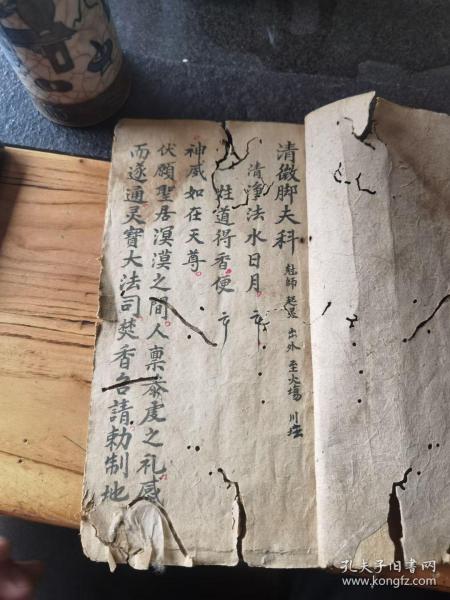 清微脚夫科 魁師 起是 出外 至火場 川壇
清淨法水日月
一炷道得香便
神威如在天尊
伏願聖居溟漠之間人禀泰虔之礼感
而遂通灵寳大法司焚香召請勅制地
孔夫子旧书网
www.kongfz.com